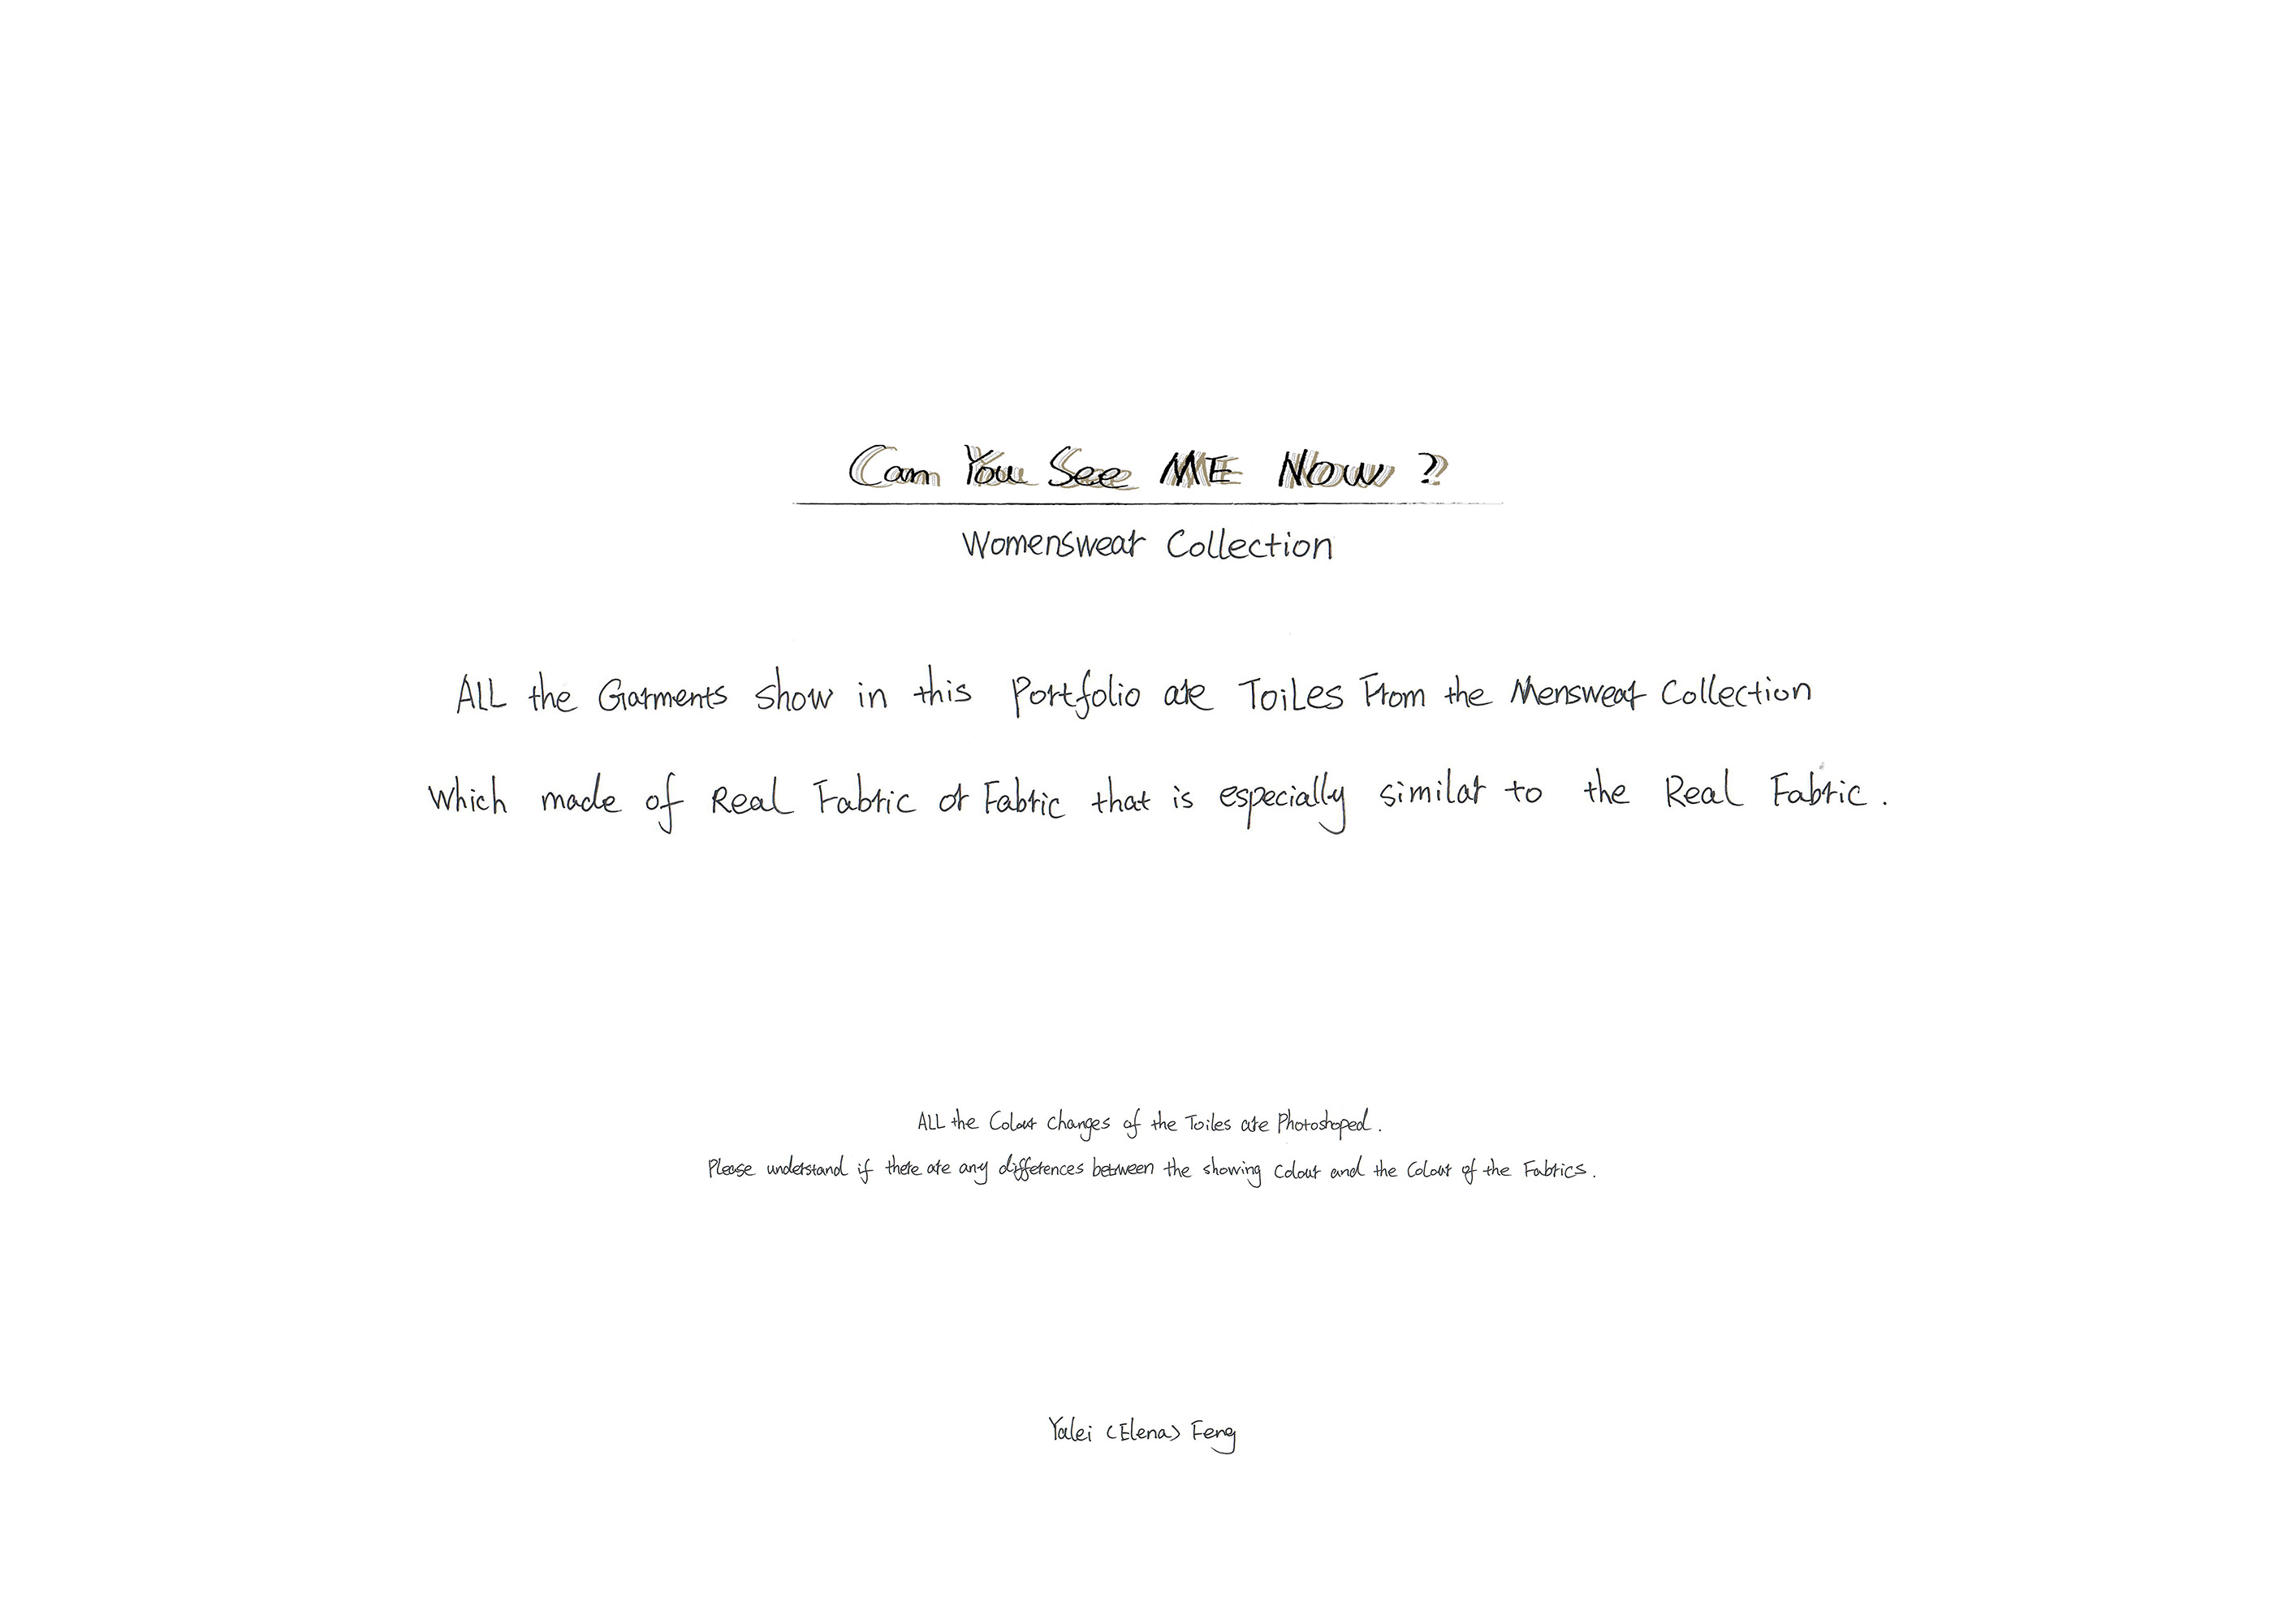 Can You See ME Now ?
Womenswear Collection
ALL the Garments show in this Portfolio are Toiles From the Menswear Collection
Which made of Real Fabric or Fabric that is especially similar to the Real Fabric .
ALL the Colour Changes of the Toiles are Photoshoped .
Please understand if there are any differences between the showing Colour and the Colour of the Fabrics .
Yalei (Elena) Feng